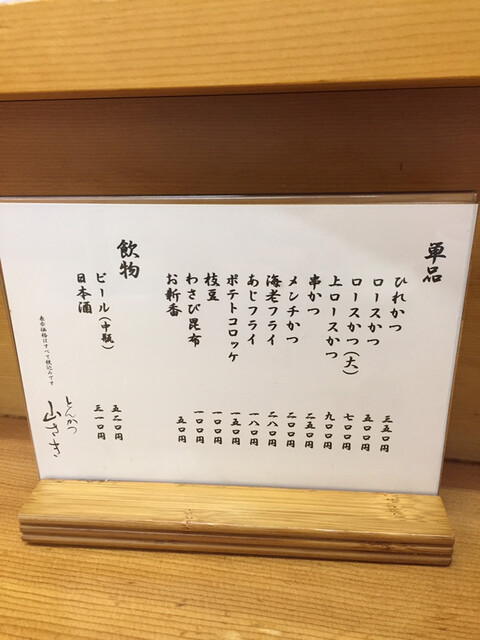 単品
ひれかつ 三五〇円
ロースかつ 五〇〇円
ロースかつ(大) 七〇〇円
上ロースかつ 九〇〇円
串かつ 二五〇円
メンチかつ 二〇〇円
海老フライ 二八〇円
あじフライ 一八〇円
ポテトコロッケ 一五〇円
枝豆 一〇〇円
わさび昆布 一〇〇円
お新香 五〇円
飲物
ビール(中瓶) 五二〇円
日本酒 三一〇円
表示価格はすべて税込みです
とんかつ
山さき